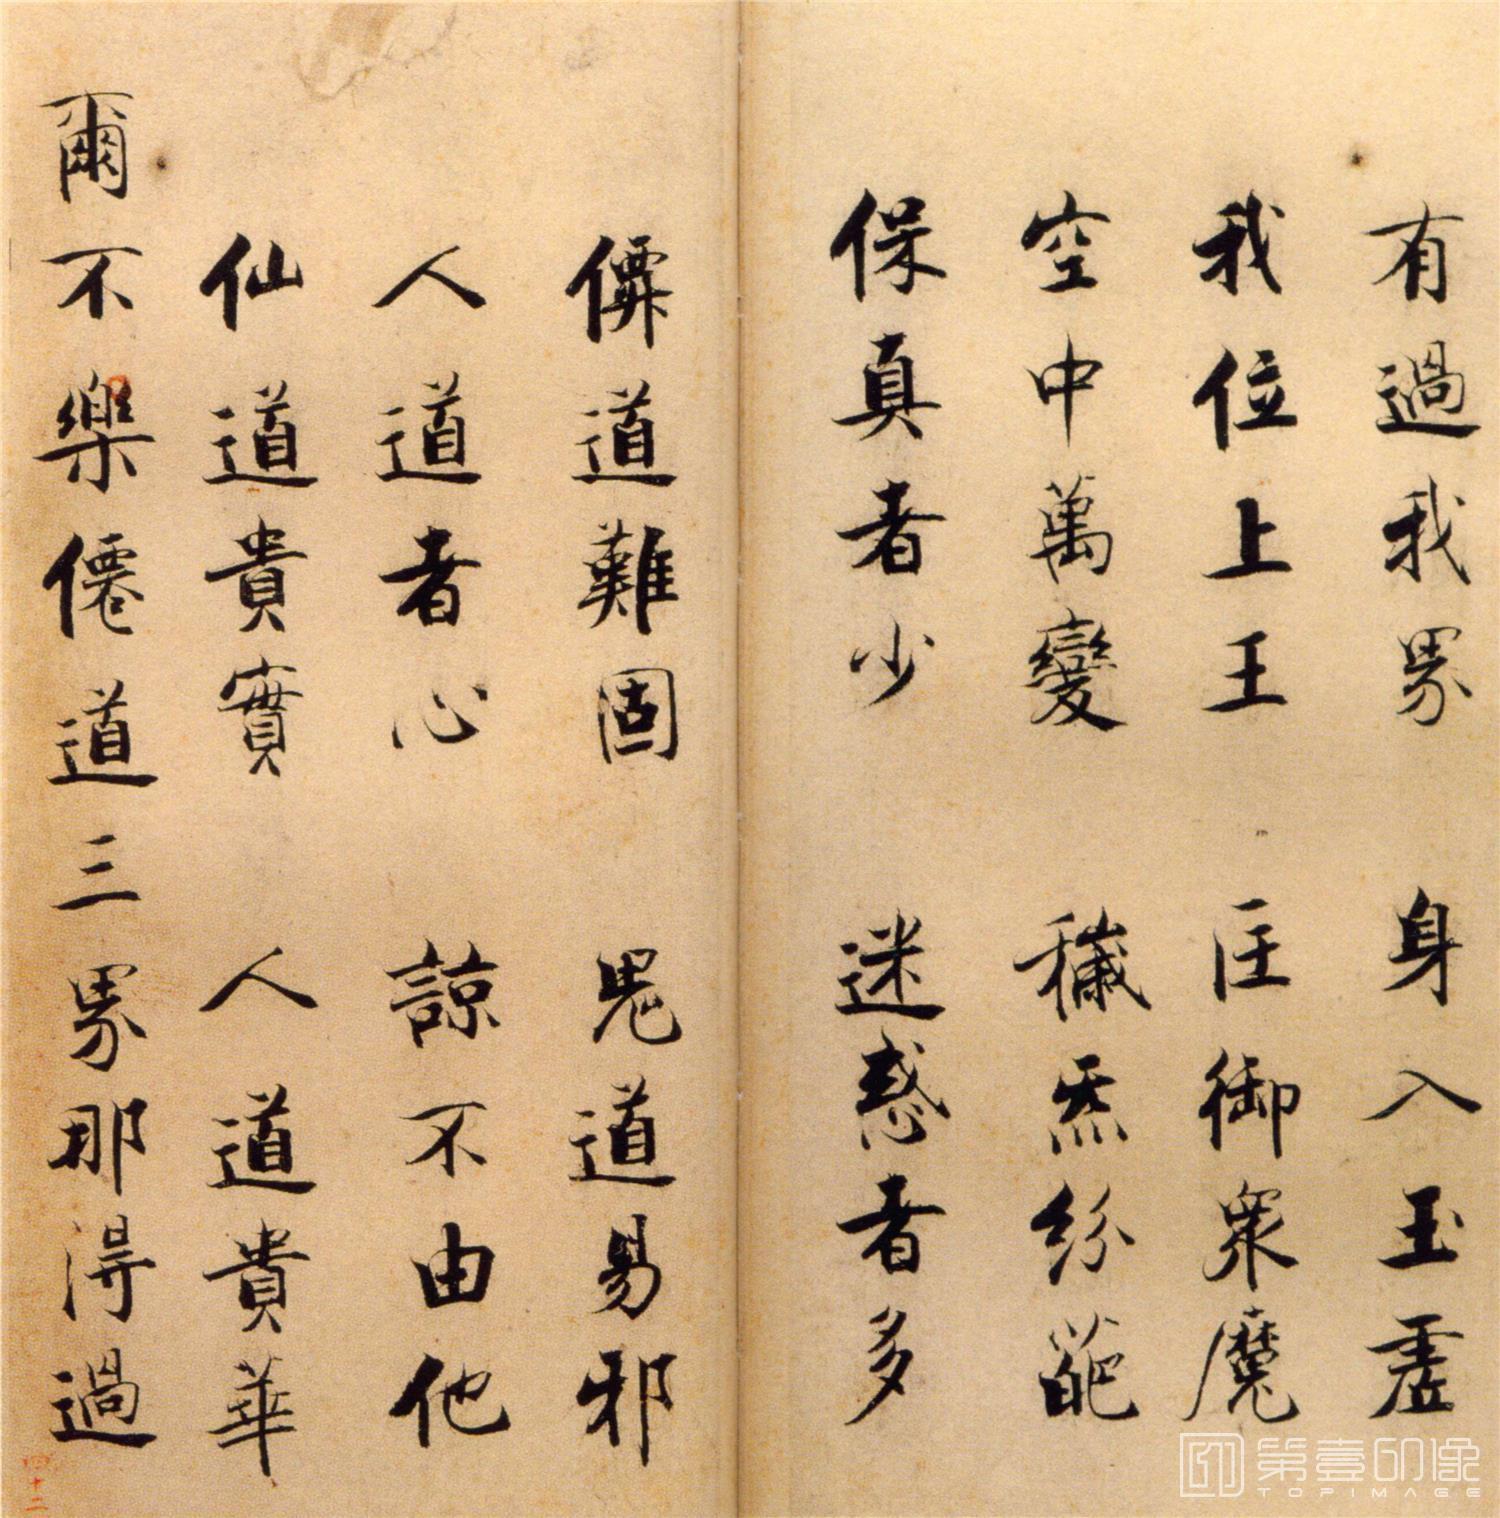 有過我界　身入玉虛
我位上王　匡御衆魔
空中萬變　穢炁紛葩
保真者少　迷惑者多
僊道難固　鬼道易邪
人道者心　諒不由他
仙道貴實　人道貴華
爾不樂僊道三界那得過
四十二
第壹印像
TOPIMAGE